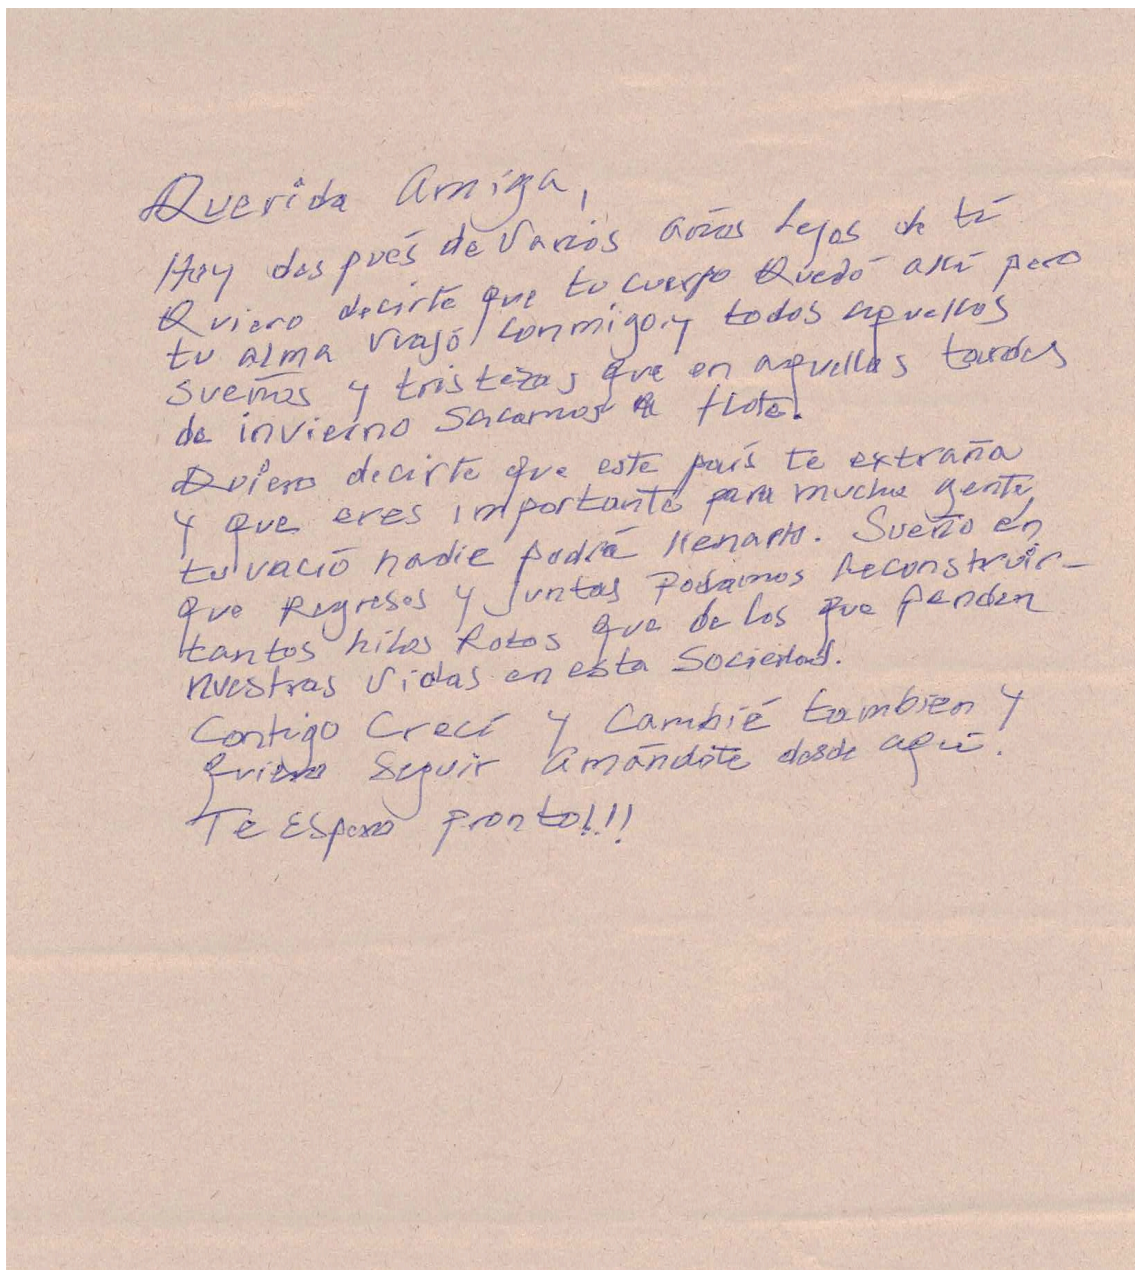 Querida Amiga,
Hoy después de Varios años lejos de tí
Quiero decirte que tu cuerpo Quedó allí pero
tu alma viajó conmigo, y todos aquellos
sueños y tristezas que en aquellas tardes
de invierno sacamos a flote.
Quiero decirte que este país te extraña
y que eres importante para mucha gente,
tu vació nadie podrá llenarlo. Sueño en
que Regreses y Juntas Podamos Reconstruir-
tantos hilos Rotos que de los que penden
nuestras Vidas en esta Sociedad.
Contigo Crecí y Cambié tambien y
quiero Seguir amándote desde aquí.
Te Espero pronto!!!